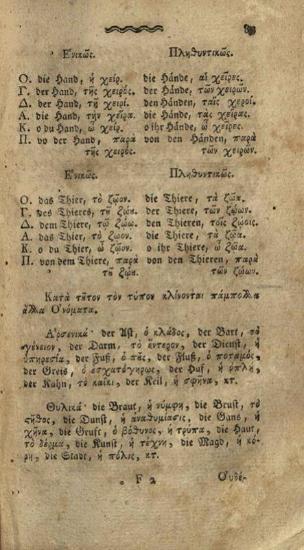 Ενικῶς. Πληθυντικῶς.
Ο. die Hand, ἡ χείρ. die Hände, αἱ χεῖρες.
Γ. der Hand, τῆς χειρός. der Hände, τῶν χειρῶν.
Δ. der Hand, τῇ χειρί. den Händen, ταῖς χερσί.
Α. die Hand, τὴν χεῖρα. die Hände, τὰς χεῖρας.
Κ. o du Hand, ὦ χείρ. o ihr Hände, ὦ χεῖρες.
Π. vo der Hand, παρὰ von den Händen, παρὰ
τῆς χειρός. τῶν χειρῶν.
Ενικῶς. Πληθυντικῶς.
Ο. das Thier, τὸ ζῶον. die Thiere, τὰ ζῶα.
Γ. des Thieres, τῦ ζώυ. der Thiere, τῶν ζώων.
Δ. dem Thiere, τῷ ζώῳ. den Thieren, τοῖς ζώοις.
Α. das Thier, τὸ ζῶον. die Thiere, τὰ ζῶα.
Κ. o du Thier, ὦ ζῶον. o ihr Thiere, ὦ ζῶα.
Π. von dem Thiere, παρὰ von den Thieren, παρὰ
τῦ ζώυ. τῶν ζώων.
Κατὰ τῦτον τὸν τύπον κλίνονται πάμπολλα
ἄλλα Ονόματα.
Αρσενικά· der Ast, ὁ κλάδος, der Bart, τὸ
γένειον, der Darm, τὸ ἔντερον, der Dienst, ἡ
ὑπηρεσία, der Fuß, ὁ πῦς, der Fluß, ὁ ποταμός,
der Greis, ὁ ἐσχατόγηρως, der Huf, ἡ ὁπλὴ,
der Kahn, τὸ καΐκι, der Keil, ἡ σφῆνα, κτ.
Θυλικά· die Braut, ἡ νύμφη, die Brust, τὸ
ςῆθος, die Dunst, ἡ ἀναθυμίασις, die Gans, ἡ
χῆνα, die Gruft, ὁ βόθυνος, ἡ τρύπα, die Haut,
τὸ δέρμα, die Kunst, ἡ τέχνη, die Magd, ἡ κό-
ρη, die Stadt, ἡ πόλις, κτ.
F 2 Ουδέ-